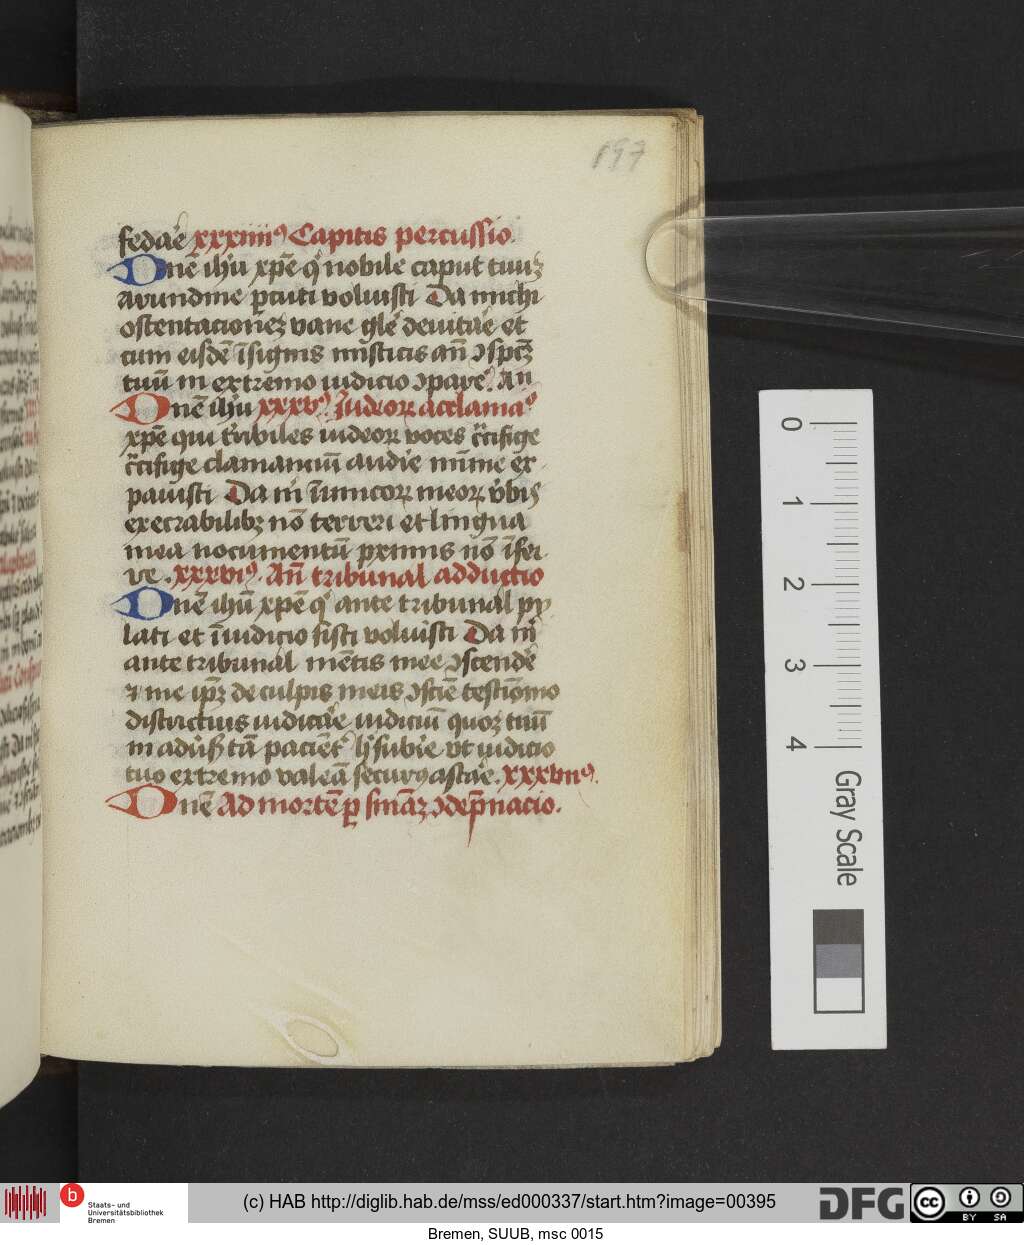 197
fedāe xxxiiii⁹ Capitis percussio.
Dnē ihū xpē q' nobile caput tuuȝ
arundine p̱cuti voluisti Da michi
ostentacioneȝ vane glē deuitāe et
cum eisdē īsignis misticis añ ↄspc̄ȝ
tuū in extremo iudicio ↄpaꝛē. Añ
Dnē ihū xxxv⁹ Iudeoꝝ acclama⁹
xpē qui t'ribiles iudeoꝝ voces c̄cifige
c̄cifige clamanciū audīe mīme ex
pauisti Da m̄ īimicoꝝ meoꝝ v̓bis
execrabilibȝ nō terreri et lingua
mea nocumentū pximis nō īfer
re. xxxvi⁹. Añ tribunal adductio
Dnē ihū xpē q' ante tribunal py
lati et ī iudicio sisti voluisti Da m̄
ante tribunal mētis mee ↄscendē
⁊ me ip̄ȝ de culpis meis ↄsciē testiōmo
districtius iudicāe iudiciū quoȝ tuū
in adūsȝ tā paciēt' lȝ subīe vt iudicio
tuo extremo valeā securꝯ astāe. xxxvii⁹.
Dnē Ad mortē ꝑ sniāȝ ↄdēpnacio.
0
1
2
3
4
Gray Scale
b
Staats- und
Universitätsbibliothek
Bremen
(c) HAB http://diglib.hab.de/mss/ed000337/start.htm?image=00395
DFG
cc
BY SA
Bremen, SUUB, msc 0015